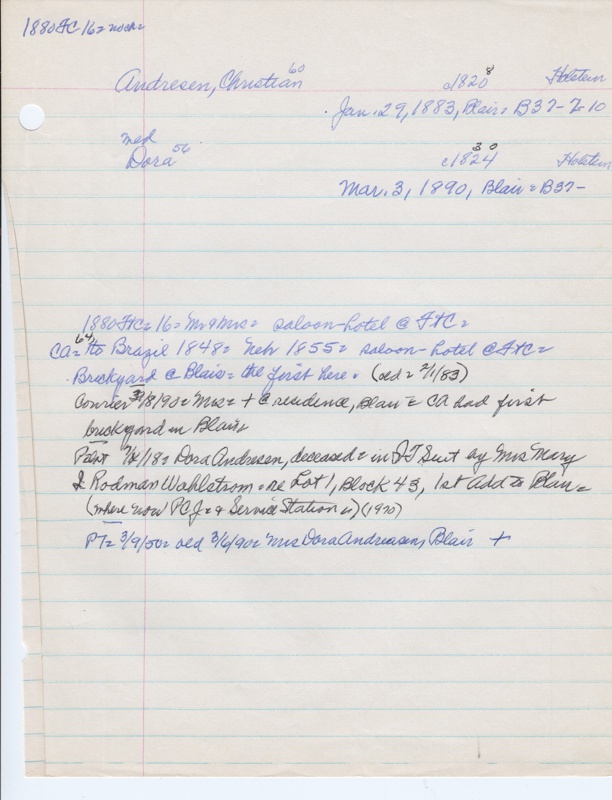 1880 FtC 16= no ch=
Andresen, Christian 60 c1820 8 Holstein
Jan. 29, 1883, Blair= B37-7-10
med
Dora 56 c1824 30 Holstein
Mar. 3, 1890, Blair= B37-
1880 FtC= 16= Mr & Mrs= saloon-hotel @ FtC=
CA= 64 to Brazil 1848= Neb 1855= saloon-hotel @ FtC=
Brickyard @ Blair= the first here. (old= 2/1/83)
Courier 3/8/90= Mrs= + @ residence, Blair= CA had first
brickyard in Blair
7/4/18= Dora Andresen, deceased= in Suit by Mrs Mary
I Rodman Wahlstrom= re Lot 1, Block 43, 1st Add to Blair=
(where now PCJ= & Service Station is) (1970)
PT= 3/9/50= old 3/6/90= Mrs Dora Andreasen, Blair +